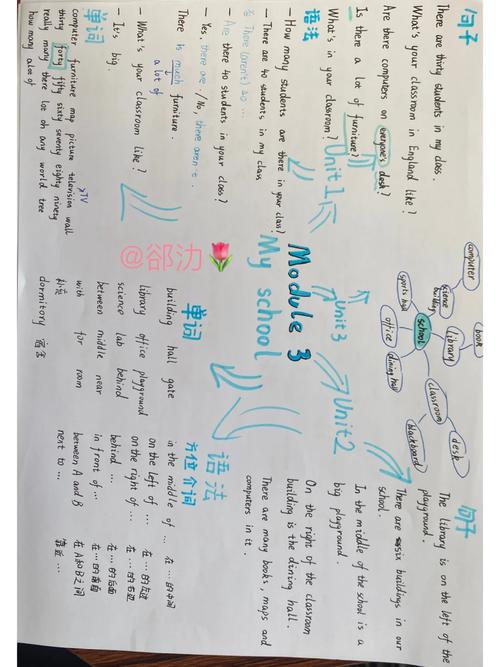 句子
There are thirty students in my class.
What's your classroom in England like?
Are there computers on everyone's desk?
Is there a lot of furniture?
What's in your classroom?
语法
- How many students are there in your class?
- There are 40 students in my class
There (aren't) 40 ...
- Are there 40 students in your class?
- Yes, there are. / No, there aren't.
There is much furniture.
a lot of
- What's your classroom like?
- It's big.
单词
>TV
computer furniture map picture television wall
thirty forty fifty sixty seventy eighty ninety
really many there lot oh any world tree
how many a lot of
Unit 1
Module 3
My school
Unit3
Unit2
@郤氻
computer
science building
sports hall
office
school
library
book
dining hall
classroom
desk
blackboard
句子
The library is on the left of the
playground.
There are six buildings in our
school.
In the middle of the school is a
big playground.
On the right of the classroom
building is the dining hall.
There are many books, maps and
computers in it.
语法
方位介词
in the middle of ... 在...的中间
on the left of ... 在...的左边
on the right of ... 在...的右边
behind ... 在...的后面
in front of ... 在...的前面
between A and B 在A和B之间
next to ... 靠近...
单词
building hall gate
library office playground
science lab behind
between middle near
with for room
补充
dormitory 宿舍